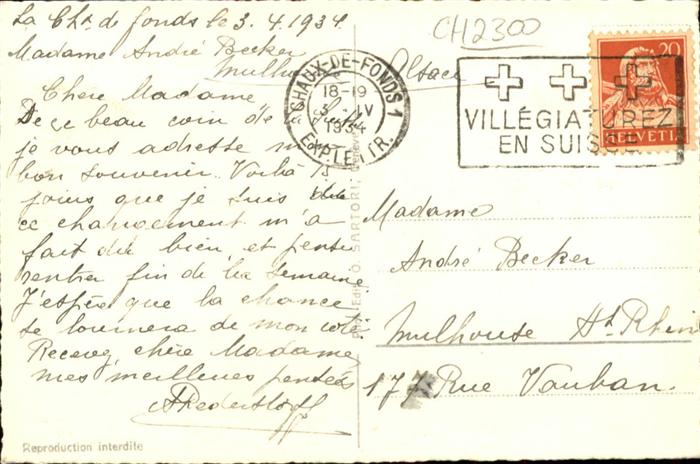 La Chx de fonds le 3.4.1934.
Madame André Becker
Mulho
Alsace
CH2300
CHAUX-DE-FONDS 1
18-19
3. IV
1934
EXP. LETTR.
VILLÉGIATUREZ
EN SUISSE
20
HELVETIA
Chère Madame,
De ce beau coin de la
je vous adresse
bon souvenir. Voilà 15
jours que je suis
ce changement m'a
fait du bien, et pense
rentrer fin de la semaine
J'espère que la chance
se tournera de mon côté
Recevez, chère Madame,
mes meilleures pensées
Madame
André Becker
Mulhouse Ht Rhin
177 Rue Vauban.
O. SARTORI, Genève
Reproduction interdite